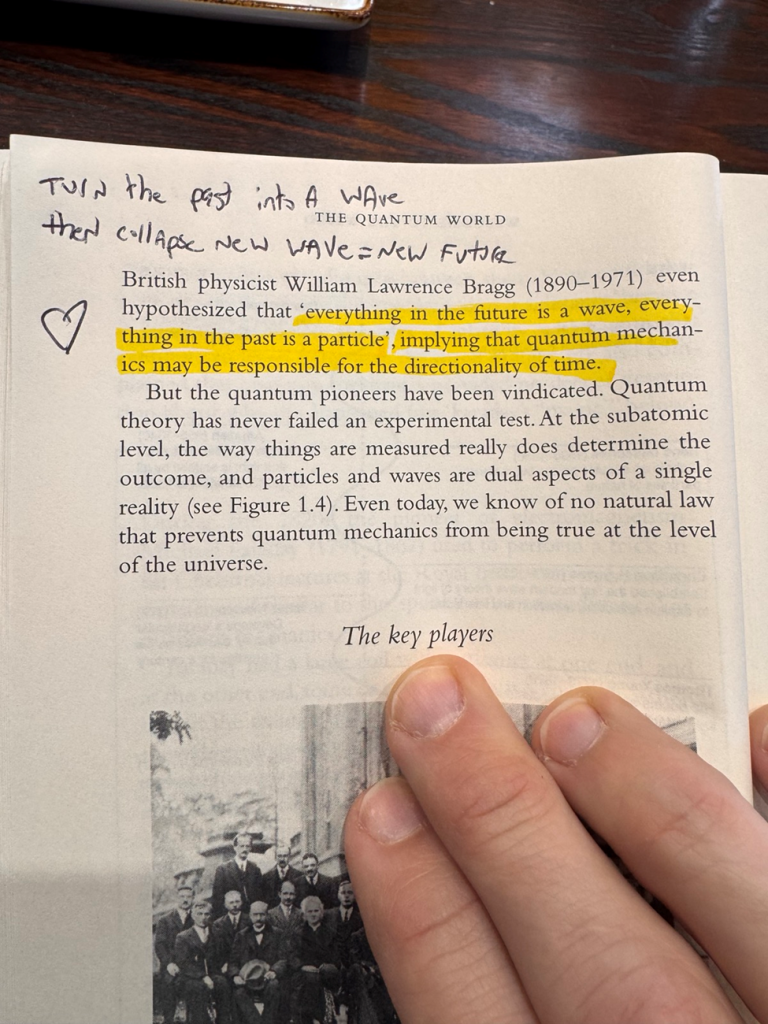 TURN the past into A WAVE
THE QUANTUM WORLD
then collapse NEW WAVE = NEW FUTURE
British physicist William Lawrence Bragg (1890–1971) even
hypothesized that ‘everything in the future is a wave, every-
thing in the past is a particle’, implying that quantum mechan-
ics may be responsible for the directionality of time.
But the quantum pioneers have been vindicated. Quantum
theory has never failed an experimental test. At the subatomic
level, the way things are measured really does determine the
outcome, and particles and waves are dual aspects of a single
reality (see Figure 1.4). Even today, we know of no natural law
that prevents quantum mechanics from being true at the level
of the universe.
The key players